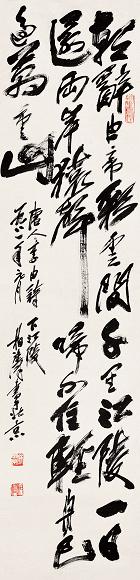 朝辭白帝彩雲間千里江陵一日
還兩岸猿聲啼不住輕舟已
過萬重山
唐人李白詩下江陵
書於北京